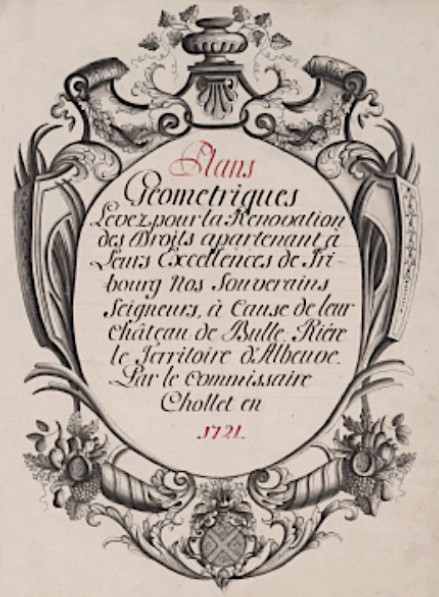 Plans
Geometriques
Levez pour la Renovation
des Droits apartenant à
Leurs Excellences de Fri-
bourg Nos Souverains
Seigneurs, à Cause de leur
Château de Bulle Riére
le Territoire d'Albeuve.
Par le Commissaire
Chollet en
1721.